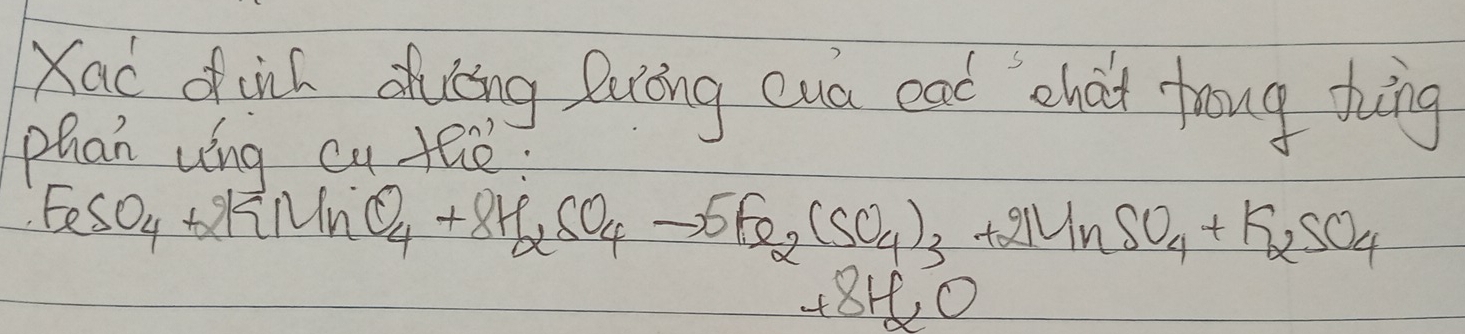 Xác định đương lượng của các chất trong từng
phản ứng cụ thể:
FeSO₄ + 2KMnO₄ + 8H₂SO₄ → 5Fe₂(SO₄)₃ + 2MnSO₄ + K₂SO₄
+ 8H₂O